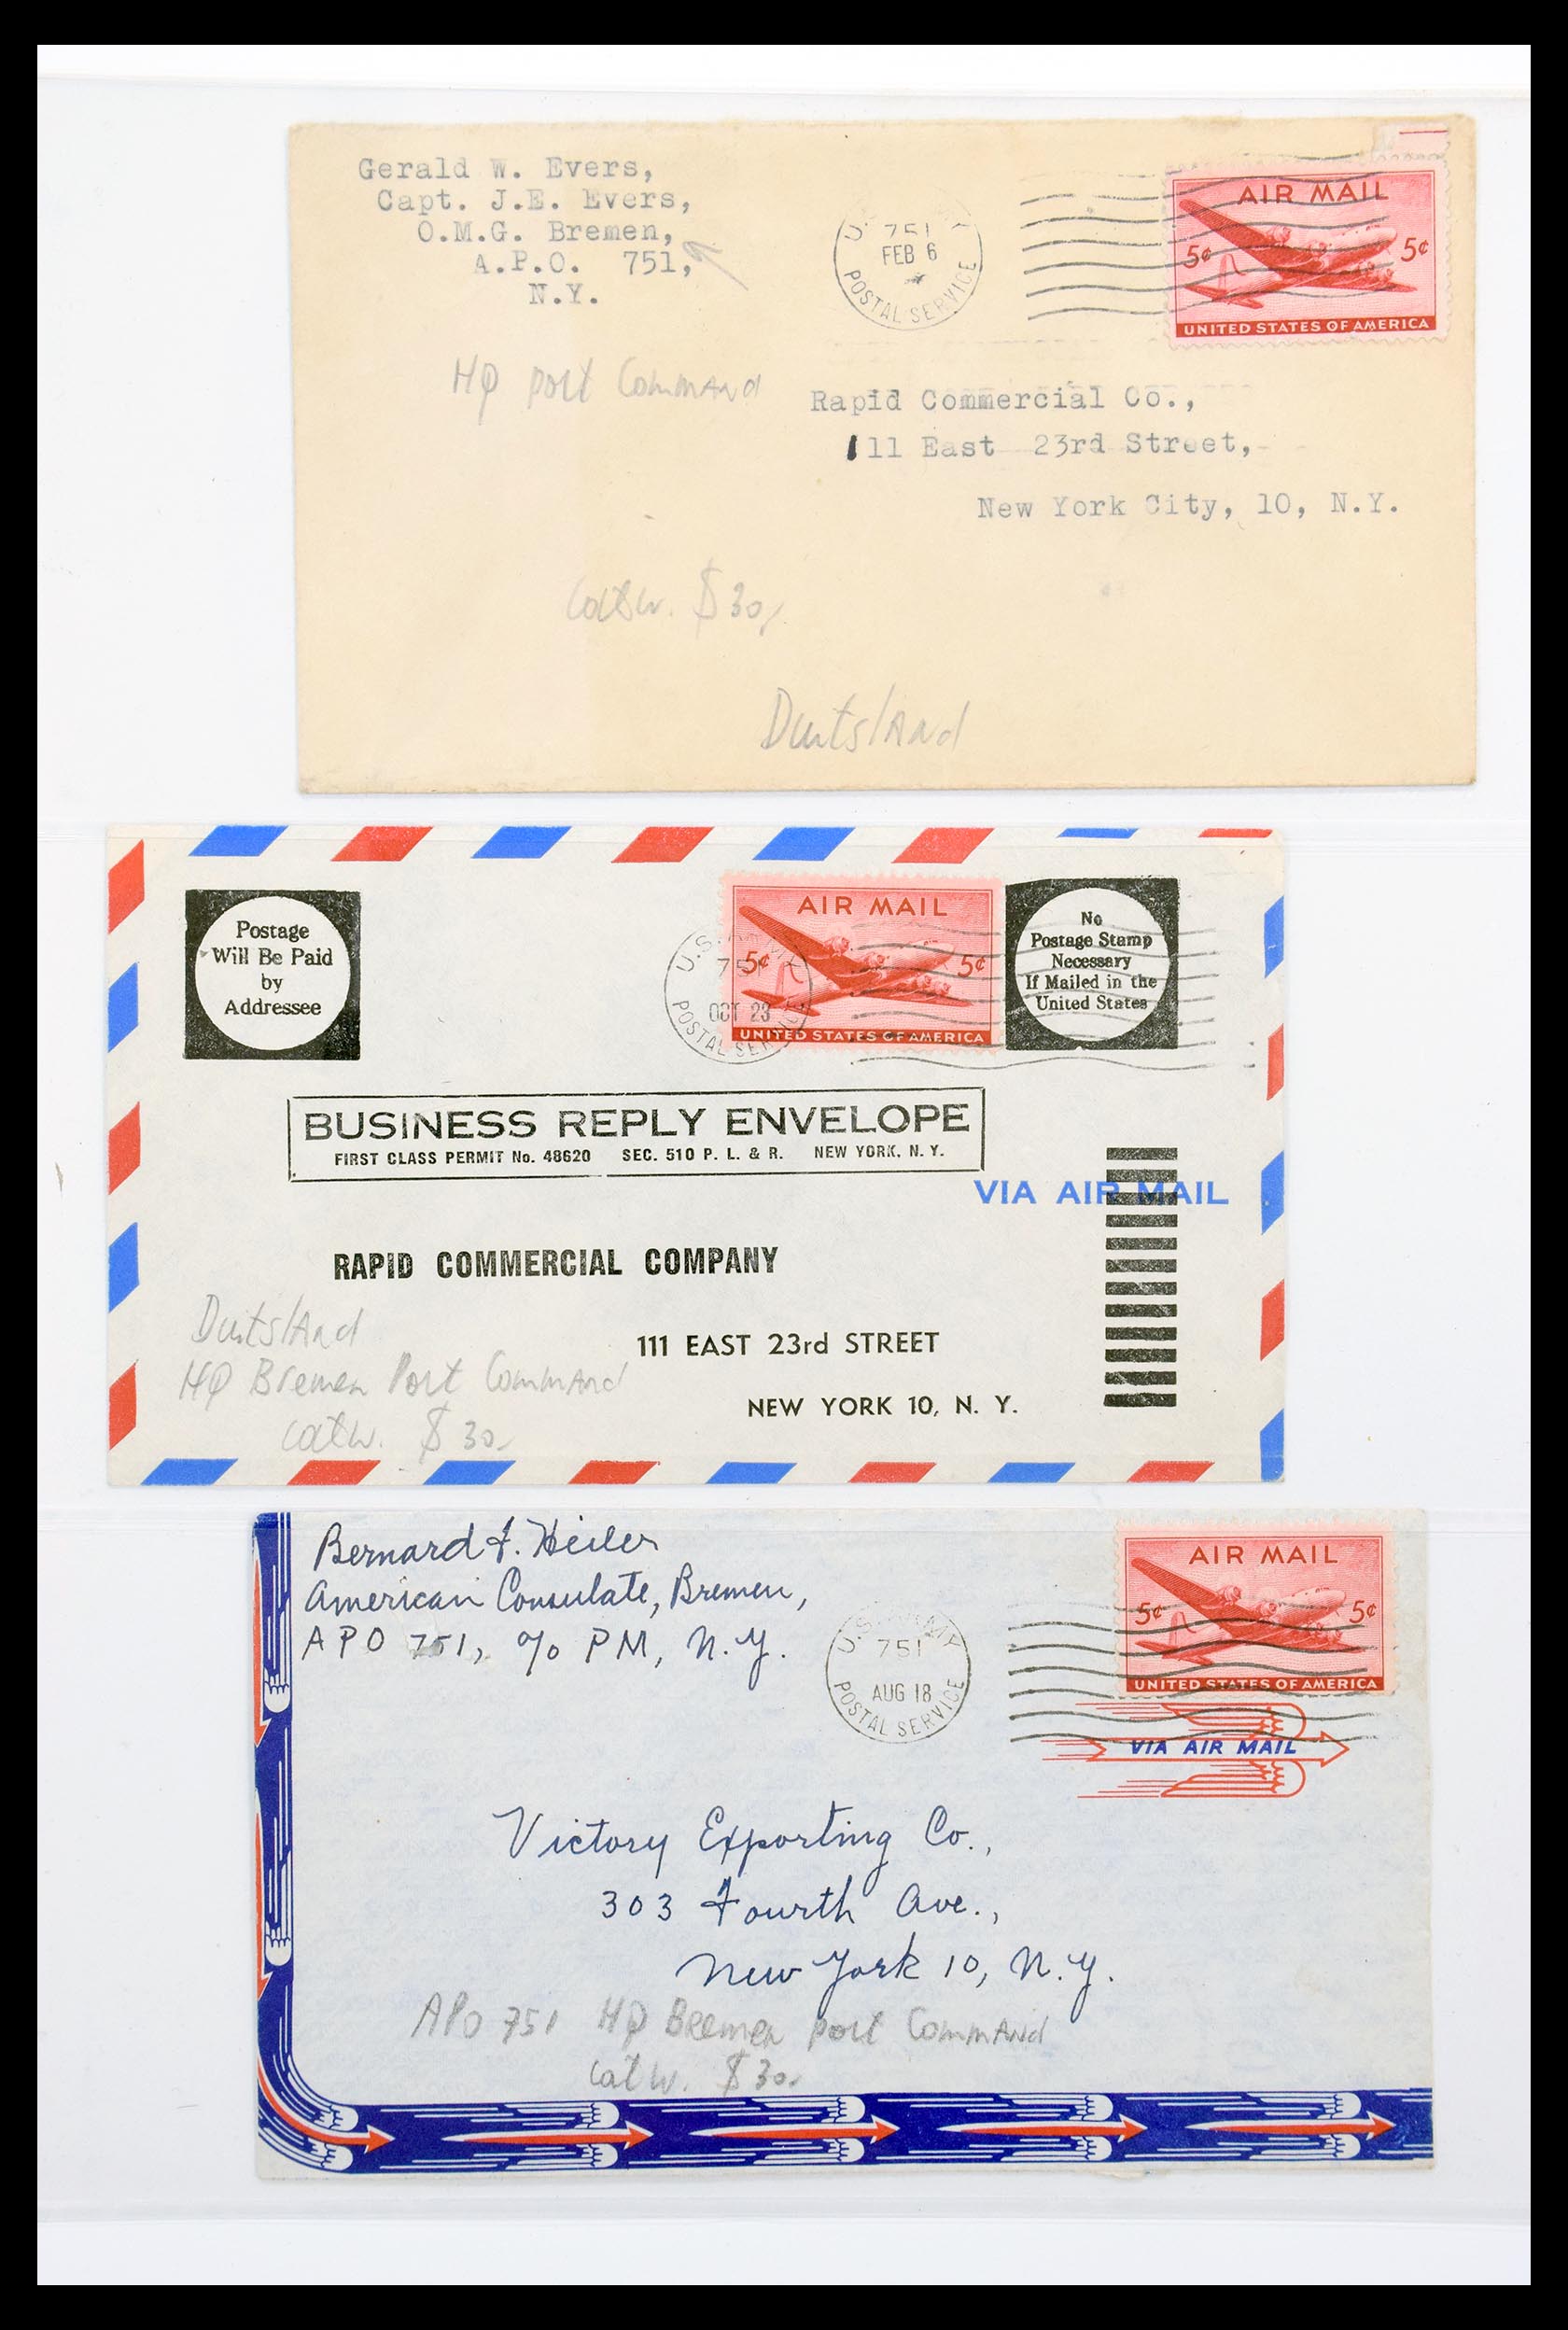 Gerald W. Evers,
Capt. J.E. Evers,
O.M.G. Bremen,
A.P.O. 751,
N.Y.
751
FEB 6
POSTAL SERVICE
AIR MAIL
5¢ 5¢
UNITED STATES OF AMERICA
HQ port Command
Rapid Commercial Co.,
111 East 23rd Street,
New York City, 10, N.Y.
catw. $30,
Duitsland
Postage
Will Be Paid
by
Addressee
U.S. ARMY
751
OCT 23
POSTAL SERVICE
AIR MAIL
5¢ 5¢
UNITED STATES OF AMERICA
No
Postage Stamp
Necessary
If Mailed in the
United States
BUSINESS REPLY ENVELOPE
FIRST CLASS PERMIT No. 48620 SEC. 510 P. L. & R. NEW YORK, N. Y.
VIA AIR MAIL
RAPID COMMERCIAL COMPANY
111 EAST 23rd STREET
NEW YORK 10, N. Y.
Duitsland
HQ Bremen Port Command
catw. $30,
Bernard F. Heiler
American Consulate, Bremen,
APO 751, c/o PM, N.Y.
U.S. ARMY
751
AUG 18
POSTAL SERVICE
AIR MAIL
5¢ 5¢
UNITED STATES OF AMERICA
VIA AIR MAIL
Victory Exporting Co.,
303 Fourth Ave.,
New York 10, N.Y.
APO 751 HQ Bremen port Command
catw. $30,